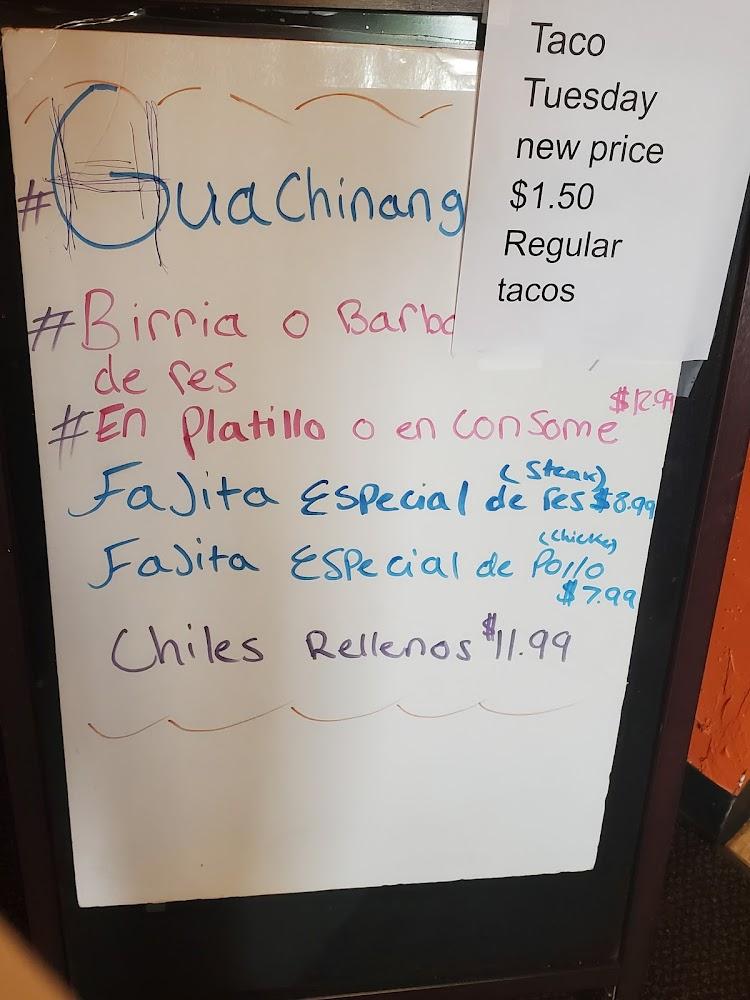 Taco
Tuesday
new price
$1.50
Regular
tacos
#Guachinang
#Birria o Barba
de res
#En Platillo o en consome $12.99
Fajita Especial de res (Steak) $8.99
Fajita Especial de Pollo (Chicken)
$7.99
Chiles Rellenos $11.99